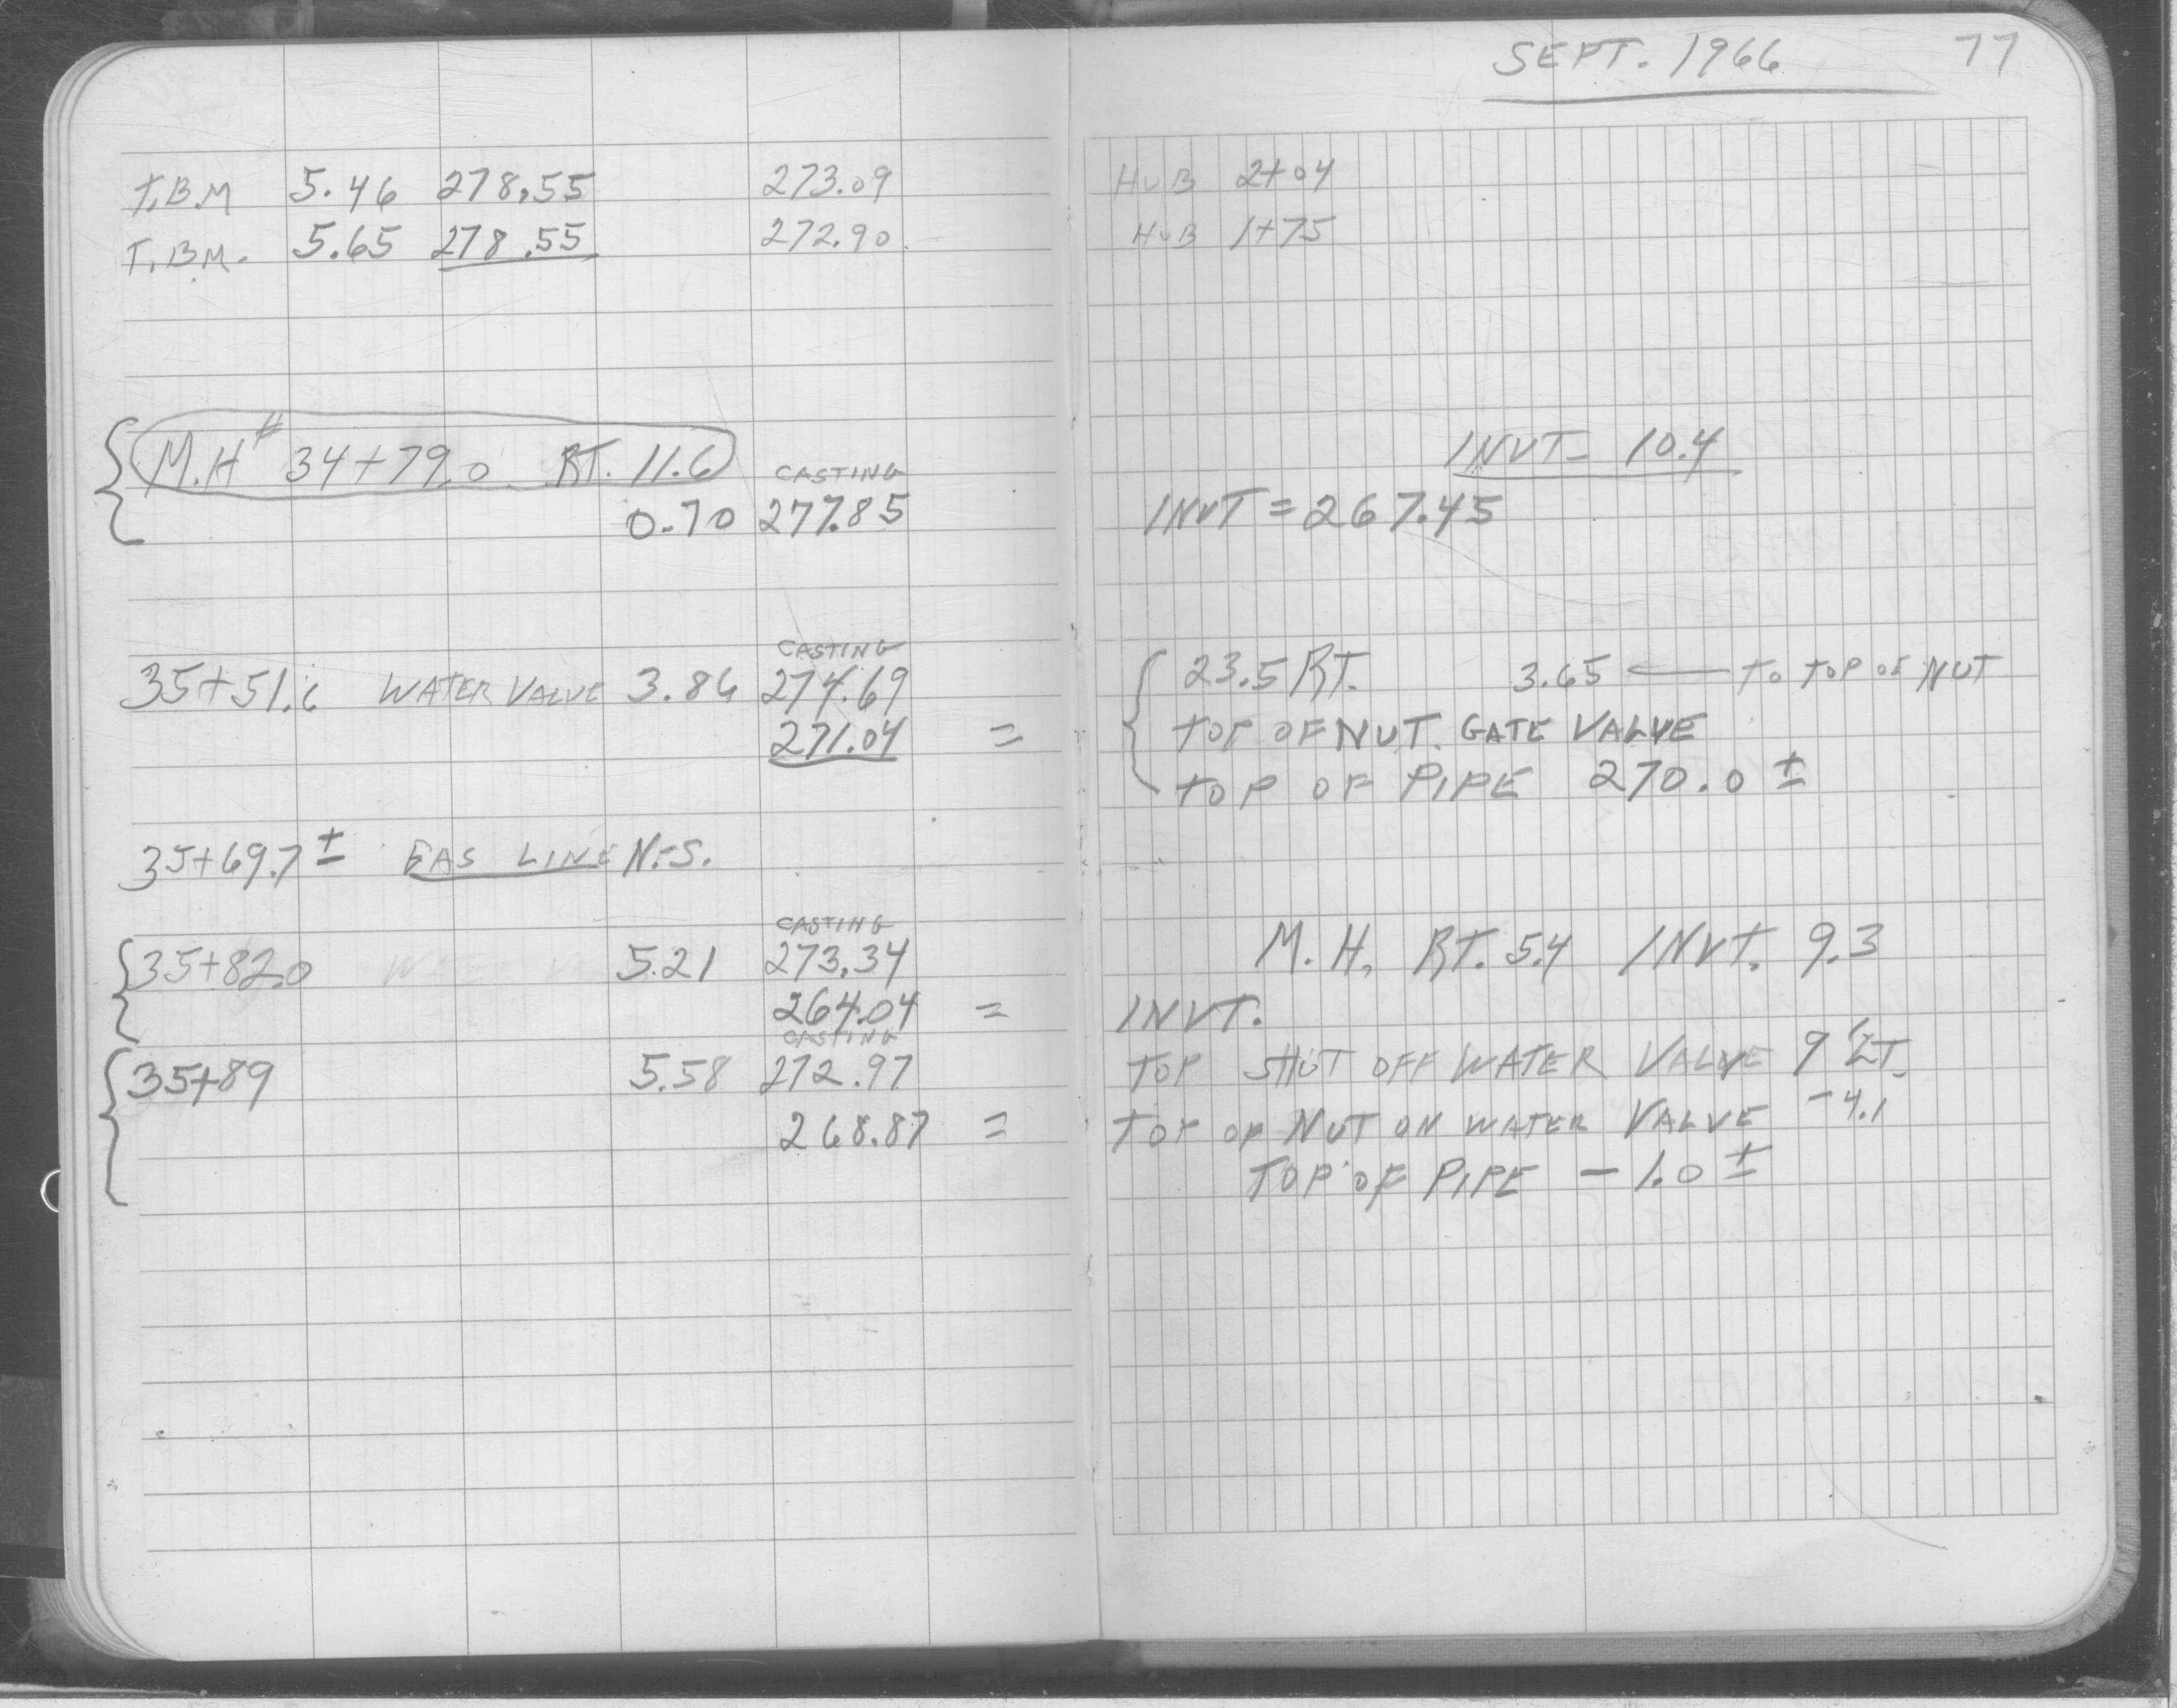 SEPT. 1966 77
T.B.M 5.46 278.55 273.09 HUB 2+04
T.B.M. 5.65 278.55 272.90 HUB 1+75
M.H# 34+79.0 RT. 11.6 CASTING INVT- 10.4
0.70 277.85 INVT = 267.45
CASTING
35+51.6 WATER VALVE 3.86 274.69 23.5 RT. 3.65 ← TO TOP OF NUT
271.04 = TOP OF NUT. GATE VALVE
TOP OF PIPE 270.0 ±
35+69.7 ± GAS LINE N.-S.
CASTING
35+82.0 5.21 273.34 M.H. RT. 5.4 INVT. 9.3
264.04 = INVT.
CASTING
35+89 5.58 272.97 TOP SHUT OFF WATER VALVE 9' LT.
268.87 = TOP OF NUT ON WATER VALVE -4.1
TOP OF PIPE - 1.0 ±